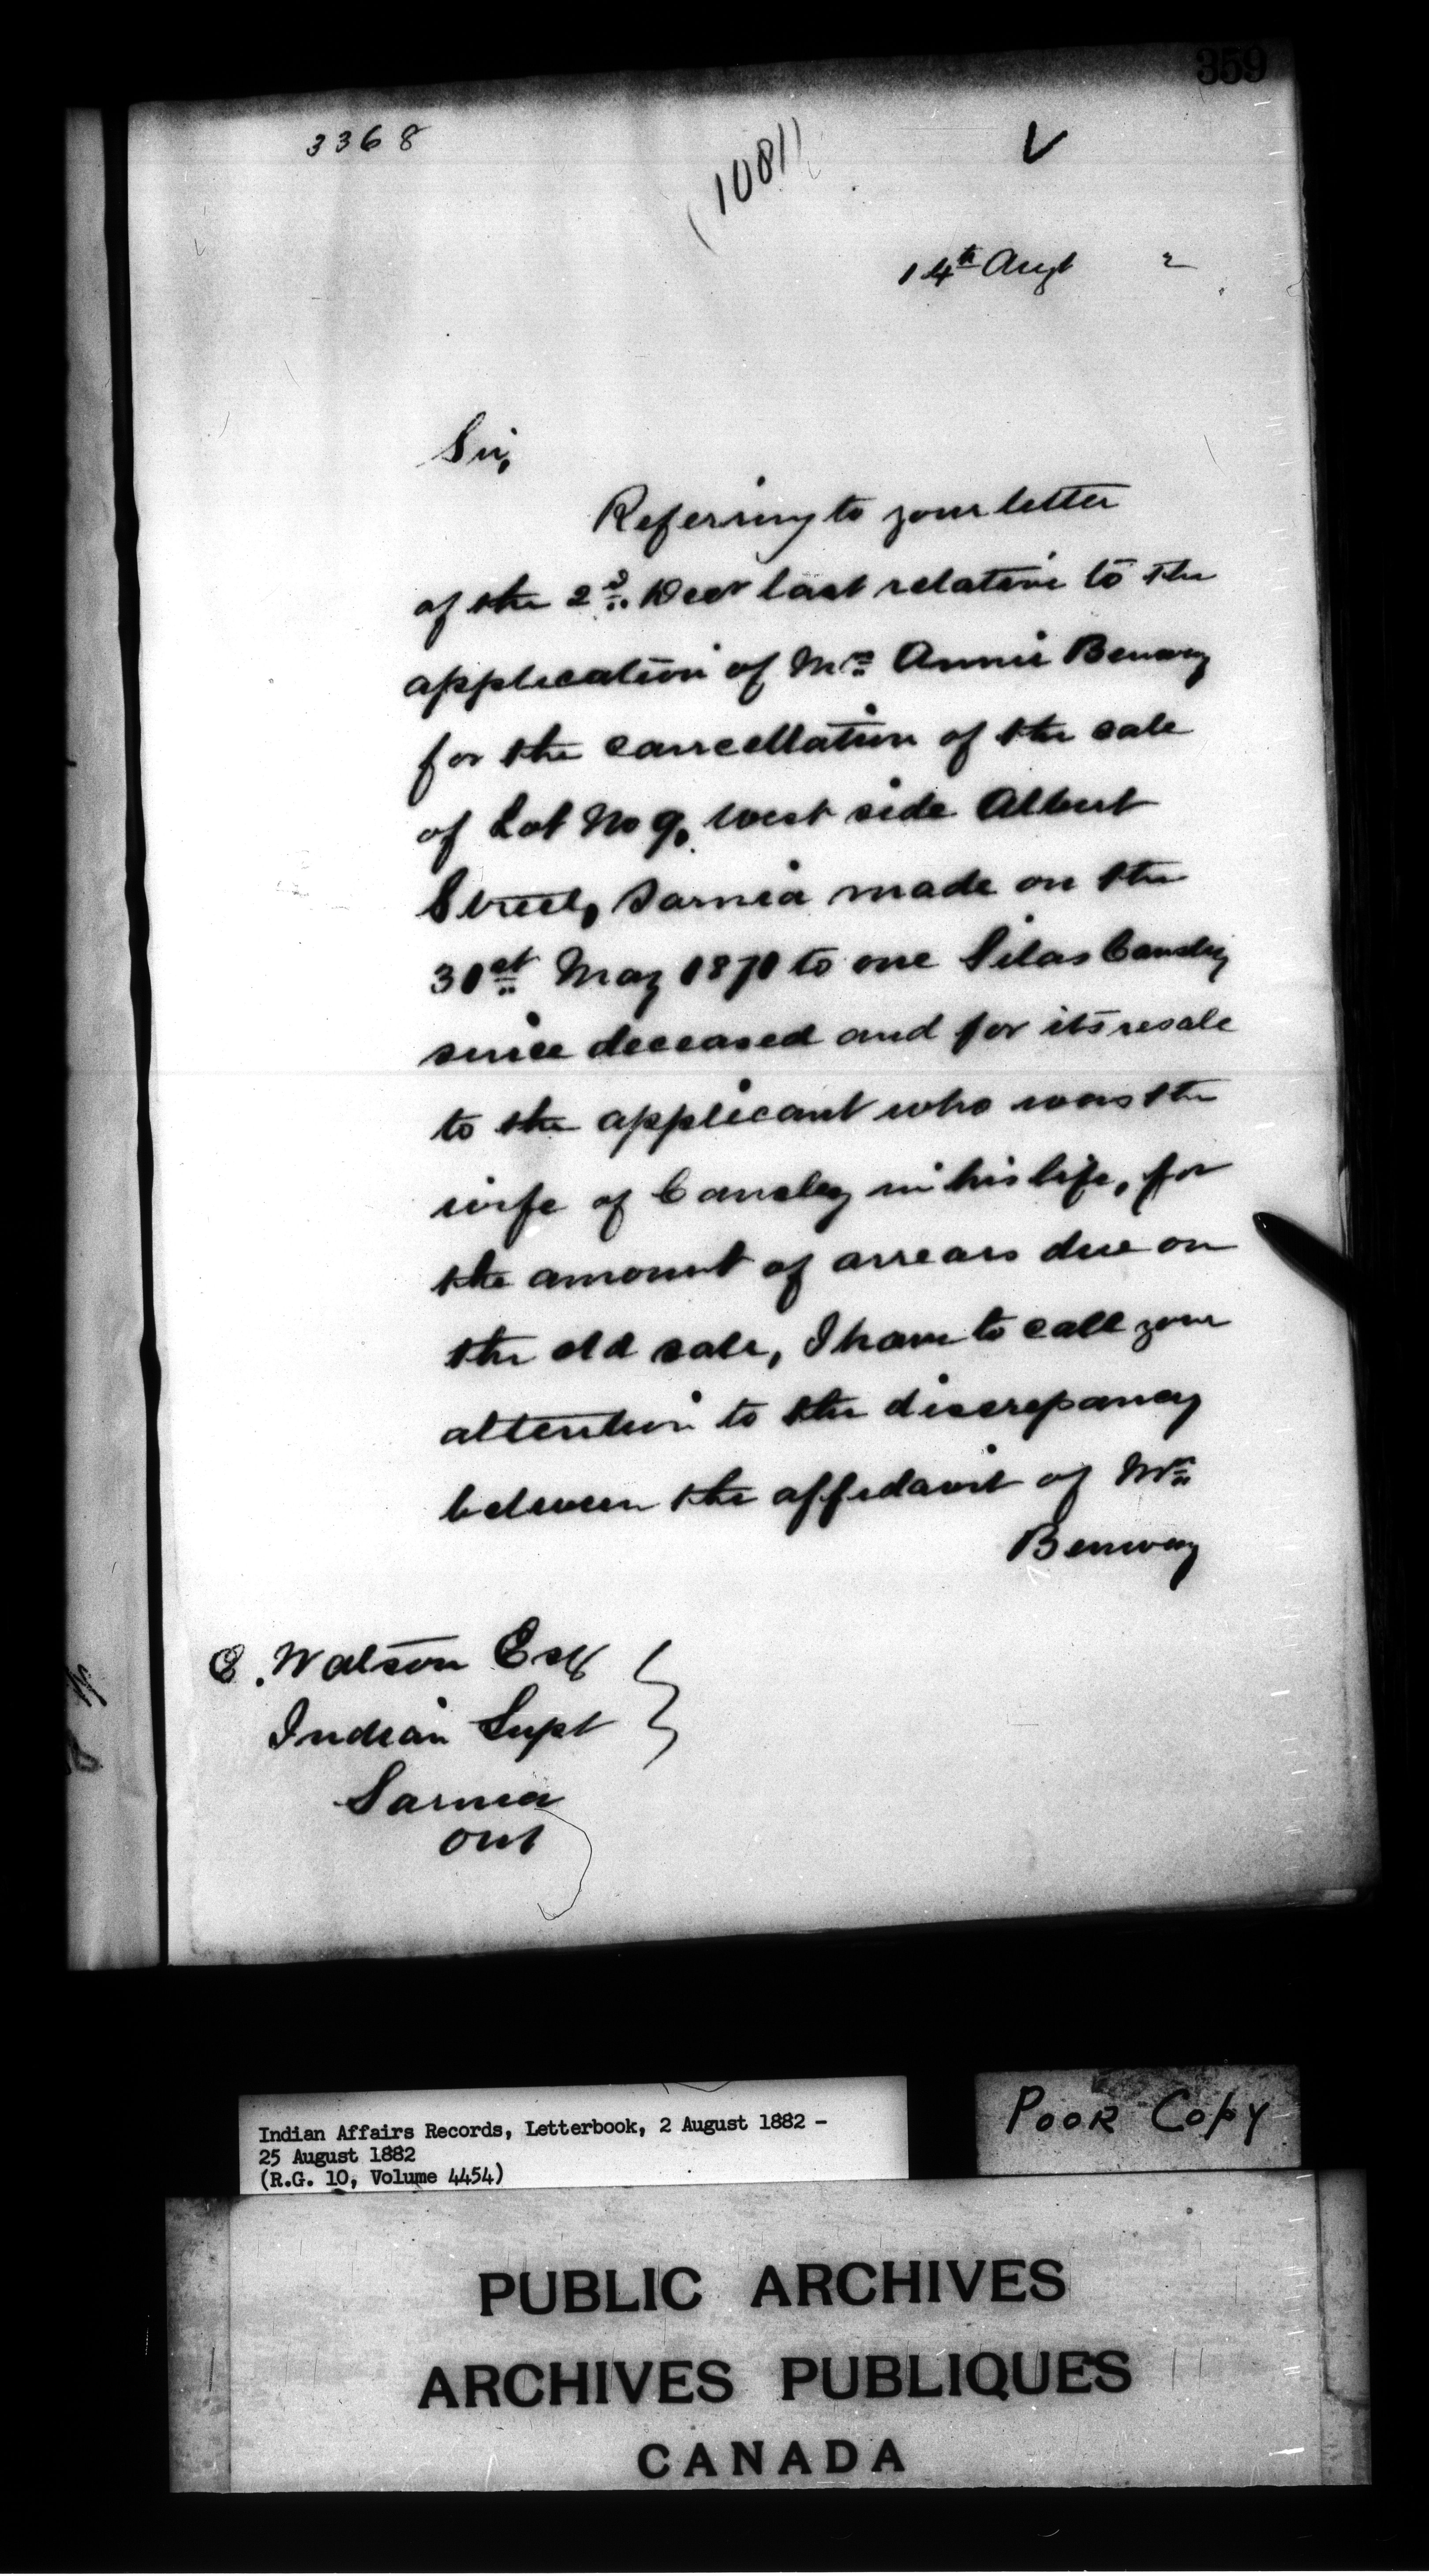 359
3368
(10811
14th Augt 2
Sir,
Referring to your letter
of the 2d Decr last relative to the
application of Mrs Annie Benway
for the cancellation of the sale
of Lot No 9, west side Albert
Street, Sarnia made on the
31st May 1871 to one Silas Cansley
since deceased and for its resale
to the applicant who was the
wife of Cansley in his life, for
the amount of arrears due on
the old sale, I have to call your
attention to the discrepancy
between the affidavit of Mrs
Benway
E. Watson Esq
Indian Supt
Sarnia
Ont
Indian Affairs Records, Letterbook, 2 August 1882 -
25 August 1882
(R.G. 10, Volume 4454)
POOR COPY
PUBLIC ARCHIVES
ARCHIVES PUBLIQUES
CANADA